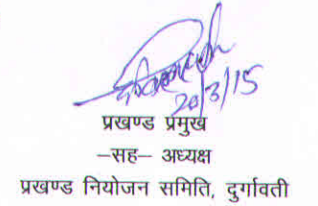 20/3/15
प्रखण्ड प्रमुख
–सह– अध्यक्ष
प्रखण्ड नियोजन समिति, दुर्गावती